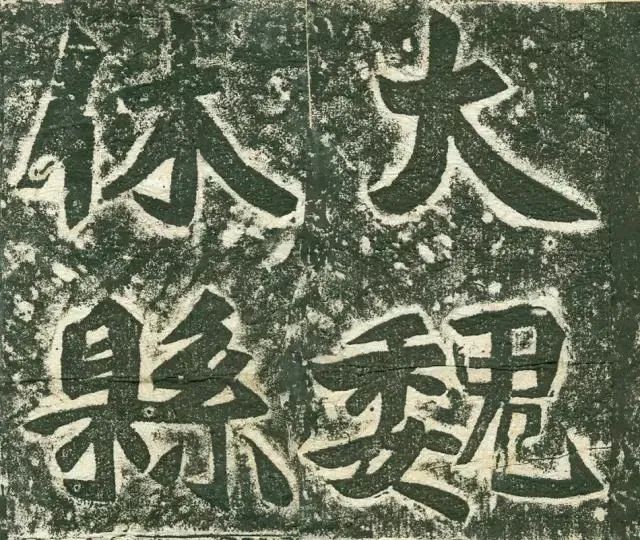 大魏
休縣